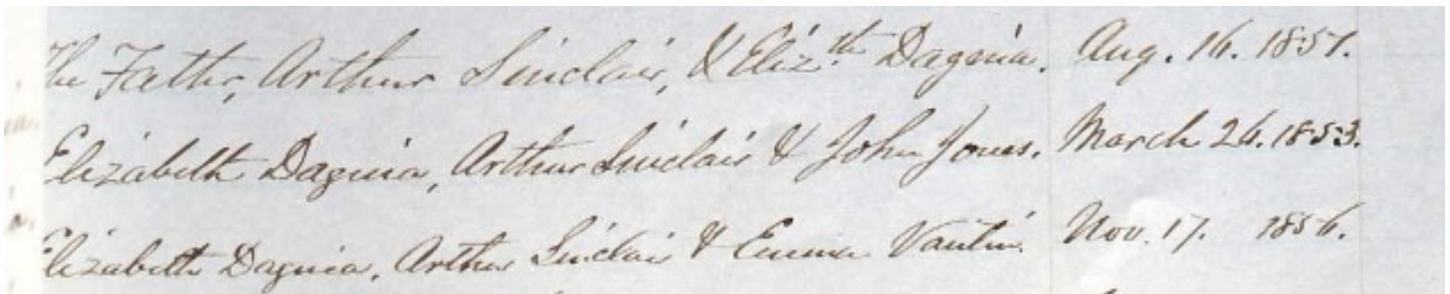 The Father, Arthur Sinclair, & Eliz.th Dagnia. Aug. 16. 1851.
Elizabeth Dagnia, Arthur Sinclair & John Jones. March 26. 1853.
Elizabeth Dagnia, Arthur Sinclair & Emma Vautin. Nov. 17. 1856.